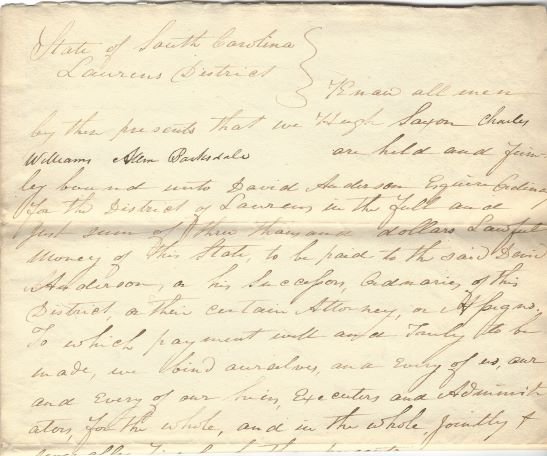 State of South Carolina
Laurens District
Know all men
by these presents that we Hugh Saxon Charles
Williams Allen Barksdale are held and firm-
ley bound unto David Anderson Esquire Ordinary
for the District of Laurens in the full and
Just sum of three thousand dollars Lawful
Money of this State, to be paid to the said David
Anderson, or his Successors, Ordinaries of this
District, or their certain Attorney, or Assigns,
To which payment well and Truly to be
made, we bind ourselves, and Every of us, our
and Every of our heirs, Executors and Administr
ators, for the whole, and in the whole, Jointly &